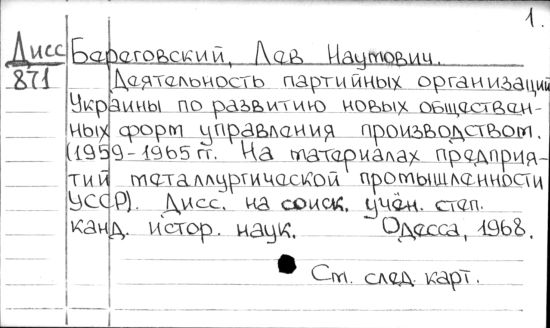 1.
Дисс Береговский, Лев Наутович.
871 Деятельность партийных организаций
Украины по развитию новых обществен-
ных форм управления производством.
(1959-1965 гг. На материалах предприя-
тий металлургической промышленности
УССР). Дисс. на соиск. учён. степ.
канд. истор. наук. Одесса, 1968.
См. след. карт.